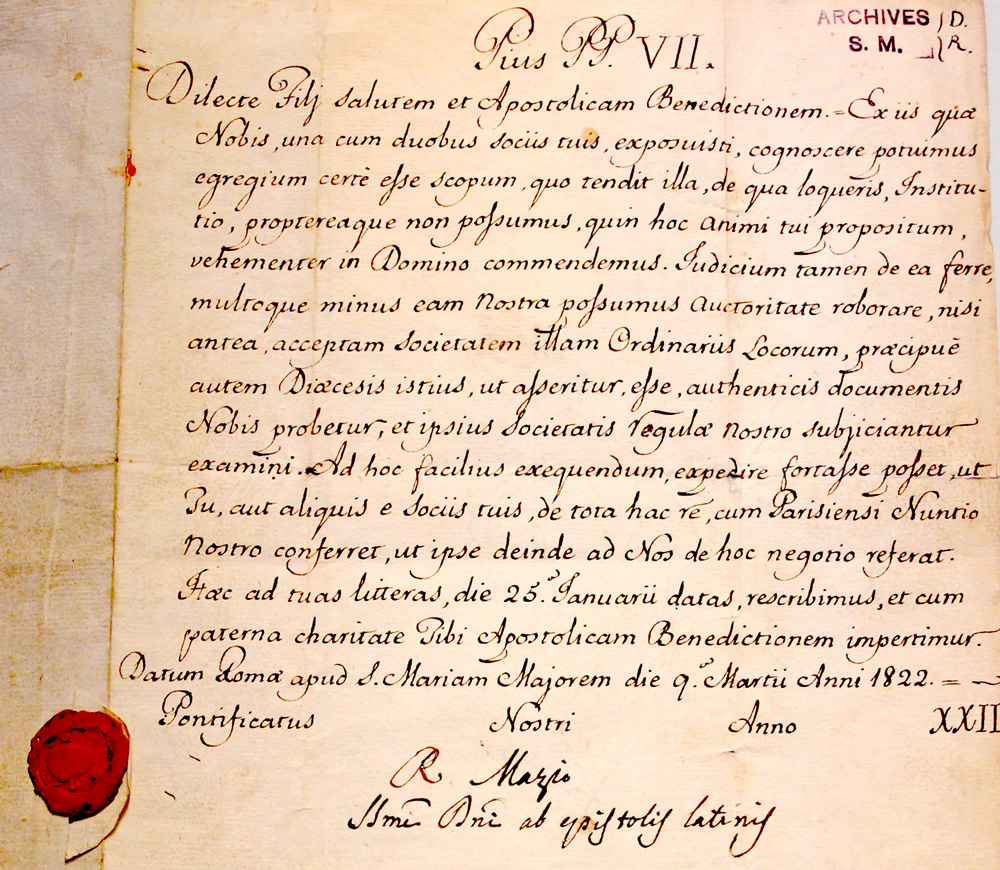 Pius PP. VII.
ARCHIVES D.
S. M. R.
Dilecte Filj salutem et Apostolicam Benedictionem. = Ex iis quæ
Nobis, una cum duobus sociis tuis, exposuisti, cognoscere potuimus
egregium certè esse scopum, quo tendit illa, de qua loqueris, Institu-
tio, proptereaque non possumus, quin hoc animi tui propositum,
vehementer in Domino commendemus. Judicium tamen de ea ferre,
multoque minus eam Nostra possumus auctoritate roborare, nisi
antea, acceptam societatem illam Ordinariis Locorum, præcipuè
autem Diæcesis istius, ut asseritur, esse, authenticis documentis
Nobis probetur, et ipsius Societatis regulæ nostro subjiciantur
examini. Ad hoc facilius exequendum, expedire fortasse posset, ut
Tu, aut aliquis e sociis tuis, de tota hac re, cum Parisiensi Nuntio
Nostro conferret, ut ipse deinde ad Nos de hoc negotio referat.
Hæc ad tuas litteras, die 25.ª Januarii datas, rescribimus, et cum
paterna charitate Tibi Apostolicam Benedictionem impertimur.
Datum Romæ apud S. Mariam Majorem die 9.ª Martii Anni 1822. =
Pontificatus Nostri Anno XXII
R. Mazio
SSmi Dni ab epistolis latinis